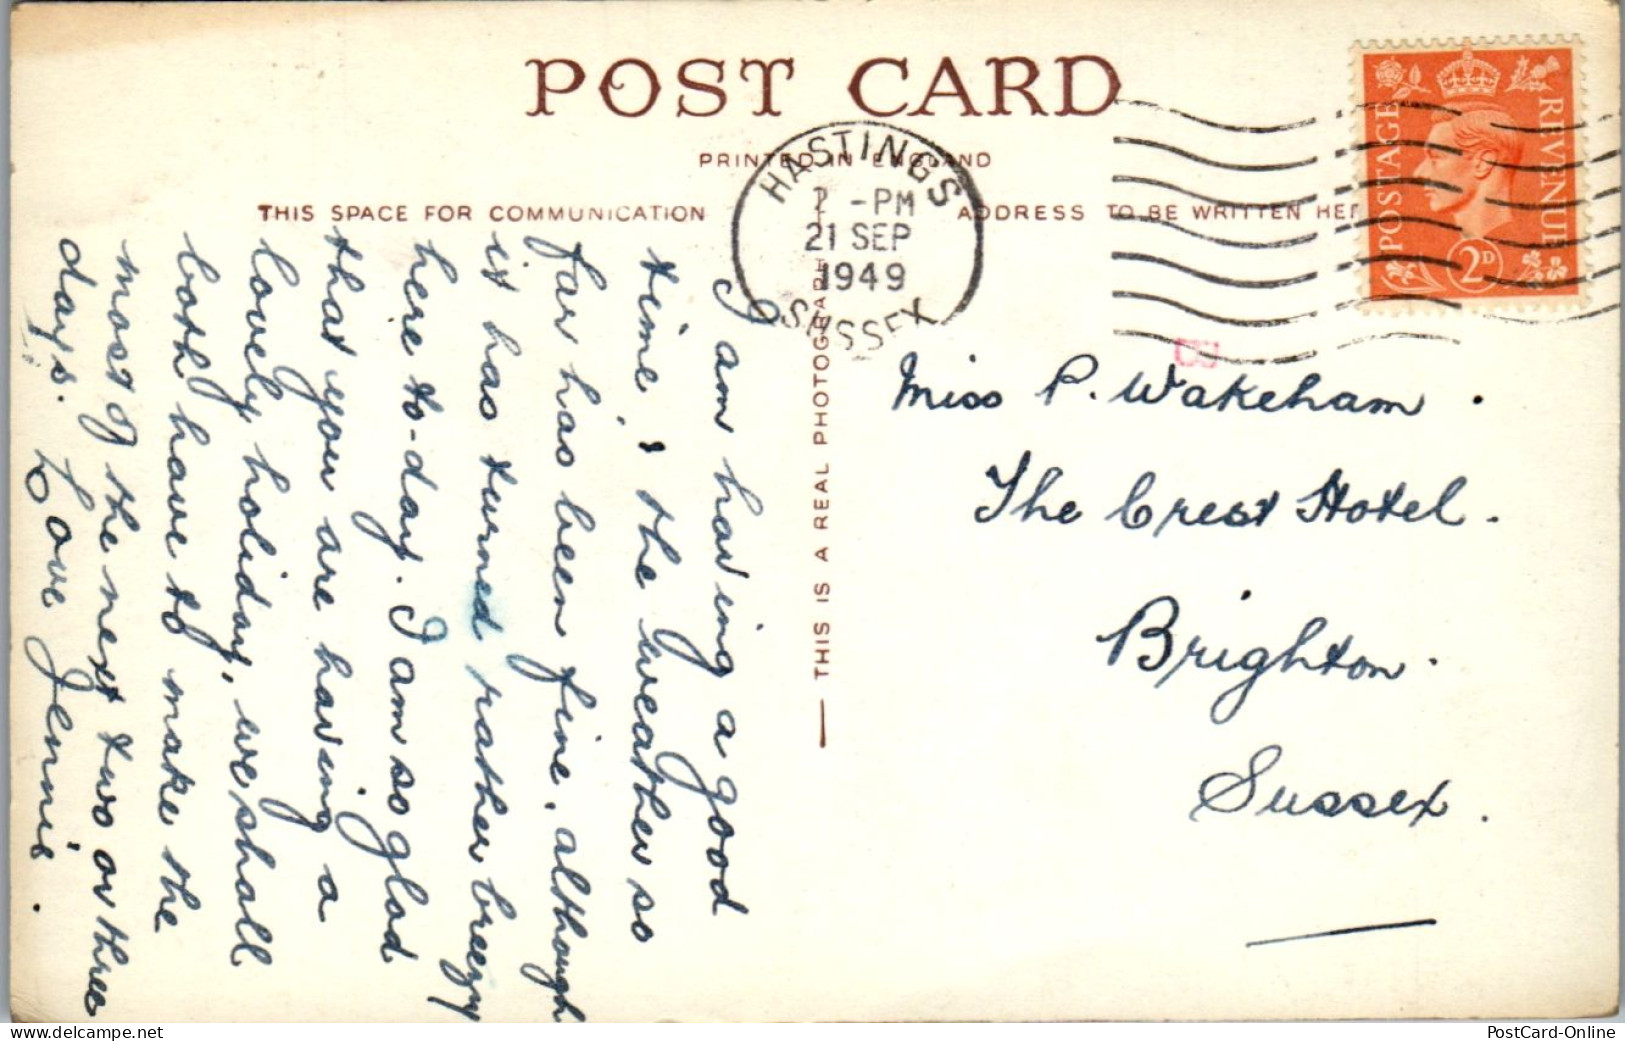 POST CARD
PRINTED IN ENGLAND
THIS SPACE FOR COMMUNICATION
ADDRESS TO BE WRITTEN HER
HASTINGS
2 - PM
21 SEP
1949
SUSSEX
POSTAGE
REVENUE
2D
THIS IS A REAL PHOTOGRAPH
I am having a good
time, & the weather so
far has been fine, although
it has turned rather breezy
here to-day. I am so glad
that you are having a
lovely holiday, we shall
both have to make the
most of the next two, or three
days. Love Jennie.
Miss P. Wakeham.
The Crest Hotel.
Brighton.
Sussex.
www.delcampe.net
PostCard-Online